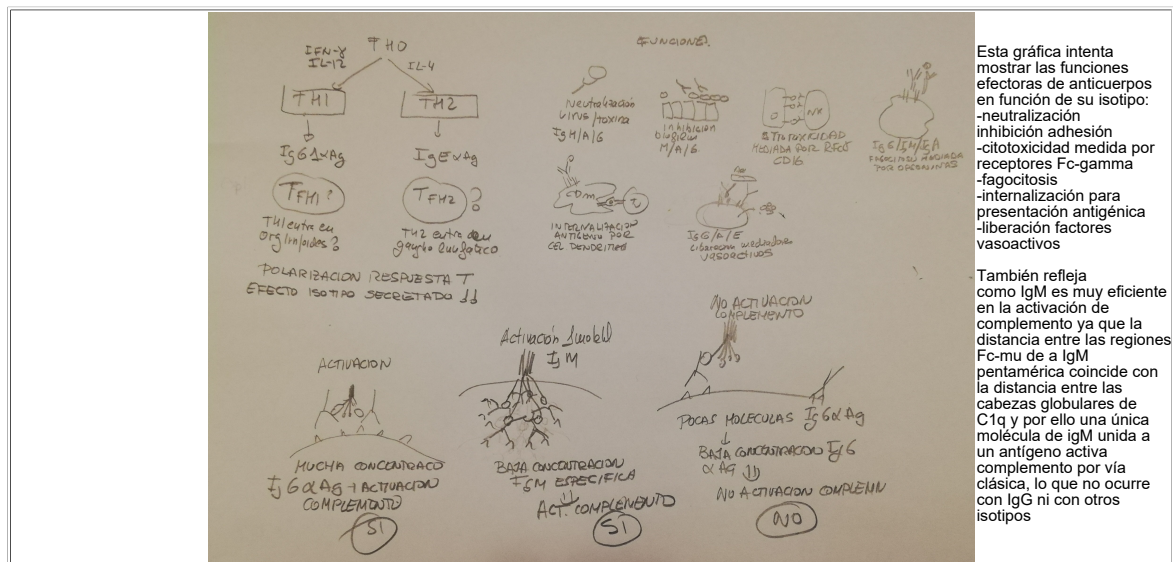 IFN-γ
IL-12
TH0
IL-4
TH1
TH2
IgG1αAg
IgEαAg
TFH1?
TFH2?
TH1 entra en
TH2 entra en
POLARIZACION RESPUESTA T
EFECTO ISOTIPO SECRETADO
FUNCIONES.
Neutralización
virus/toxina
IgM/A/G
Inhibición
M/A/G
NK
CITOTOXICIDAD
MEDIADA POR
CD16
IgG/IgM/IgA
MEDIADA
POR OPSONINAS
INTERNALIZACION
ANTIGENO POR
CEL DENDRITICAS
IgG/A/E
Liberación mediadores
VASOACTIVOS
ACTIVACION
MUCHA CONCENTRACO
IgGαAg → ACTIVACION
COMPLEMENTO
SI
Activación 1 molecul
IgM
BAJA CONCENTRACION
IgM ESPECIFICA
ACT. COMPLEMENTO
SI
NO ACTIVACION
COMPLEMENTO
POCAS MOLECULAS IgGαAg
BAJA CONCENTRACION IgG
αAg
NO ACTIVACION COMPLEMN
NO
Esta gráfica intenta
mostrar las funciones
efectoras de anticuerpos
en función de su isotipo:
-neutralización
inhibición adhesión
-citotoxicidad medida por
receptores Fc-gamma
-fagocitosis
-internalización para
presentación antigénica
-liberación factores
vasoactivos
También refleja
como IgM es muy eficiente
en la activación de
complemento ya que la
distancia entre las regiones
Fc-mu de a IgM
pentamérica coincide con
la distancia entre las
cabezas globulares de
C1q y por ello una única
molécula de igM unida a
un antígeno activa
complemento por vía
clásica, lo que no ocurre
con IgG ni con otros
isotipos